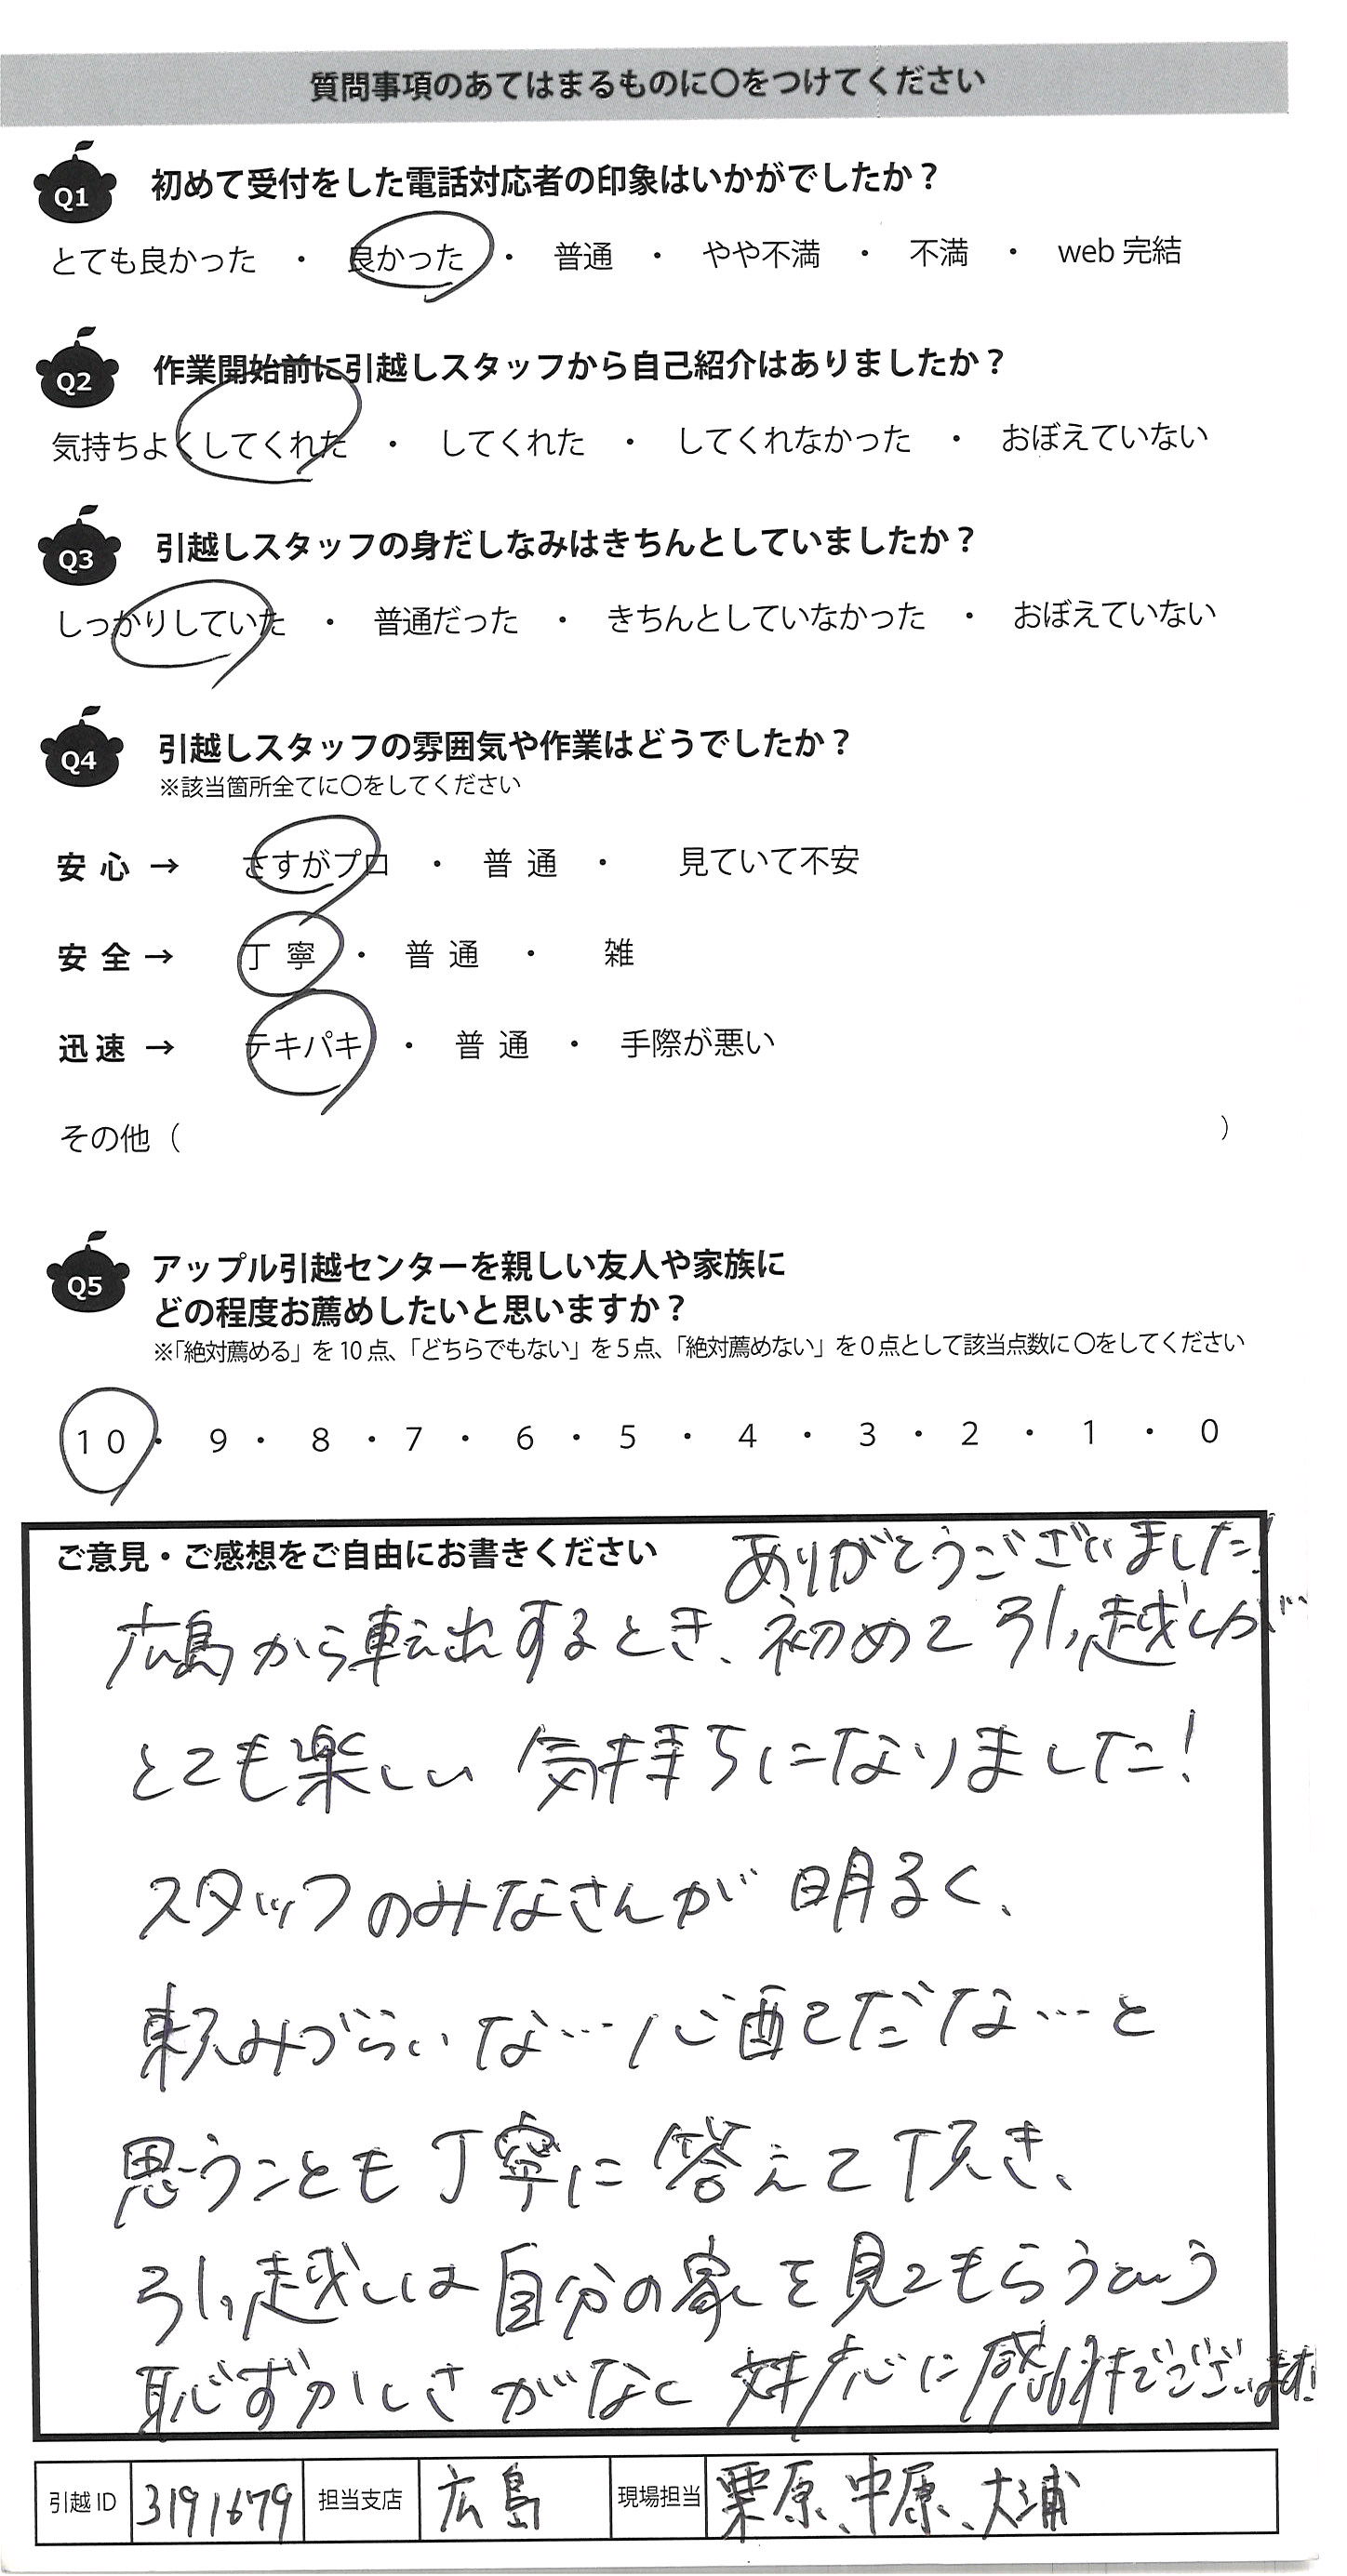 質問事項のあてはまるものに〇をつけてください
Q1 初めて受付をした電話対応者の印象はいかがでしたか？
とても良かった ・ 良かった ・ 普通 ・ やや不満 ・ 不満 ・ web 完結
Q2 作業開始前に引越しスタッフから自己紹介はありましたか？
気持ちよくしてくれた ・ してくれた ・ してくれなかった ・ おぼえていない
Q3 引越しスタッフの身だしなみはきちんとしていましたか？
しっかりしていた ・ 普通だった ・ きちんとしていなかった ・ おぼえていない
Q4 引越しスタッフの雰囲気や作業はどうでしたか？
※該当箇所全てに〇をしてください
安心 → さすがプロ ・ 普通 ・ 見ていて不安
安全 → 丁寧 ・ 普通 ・ 雑
迅速 → テキパキ ・ 普通 ・ 手際が悪い
その他（ ）
Q5 アップル引越センターを親しい友人や家族に
どの程度お薦めしたいと思いますか？
※「絶対薦める」を 10 点、「どちらでもない」を 5 点、「絶対薦めない」を 0 点として該当点数に 〇をしてください
10 ・ 9 ・ 8 ・ 7 ・ 6 ・ 5 ・ 4 ・ 3 ・ 2 ・ 1 ・ 0
ご意見・ご感想をご自由にお書きください ありがとうございました!
広島から転出するとき、初めて引っ越しが
とても楽しい気持ちになりました!
スタッフのみなさんが明るく、
頼みづらいな…心配だな…と
思うことも丁寧に答えて頂き、
引っ越しは自分の家を見てもらうという
恥ずかしさがなく 対応に感謝でございます!
引越 ID 3191679 担当支店 広島 現場担当 栗原、中原、大浦